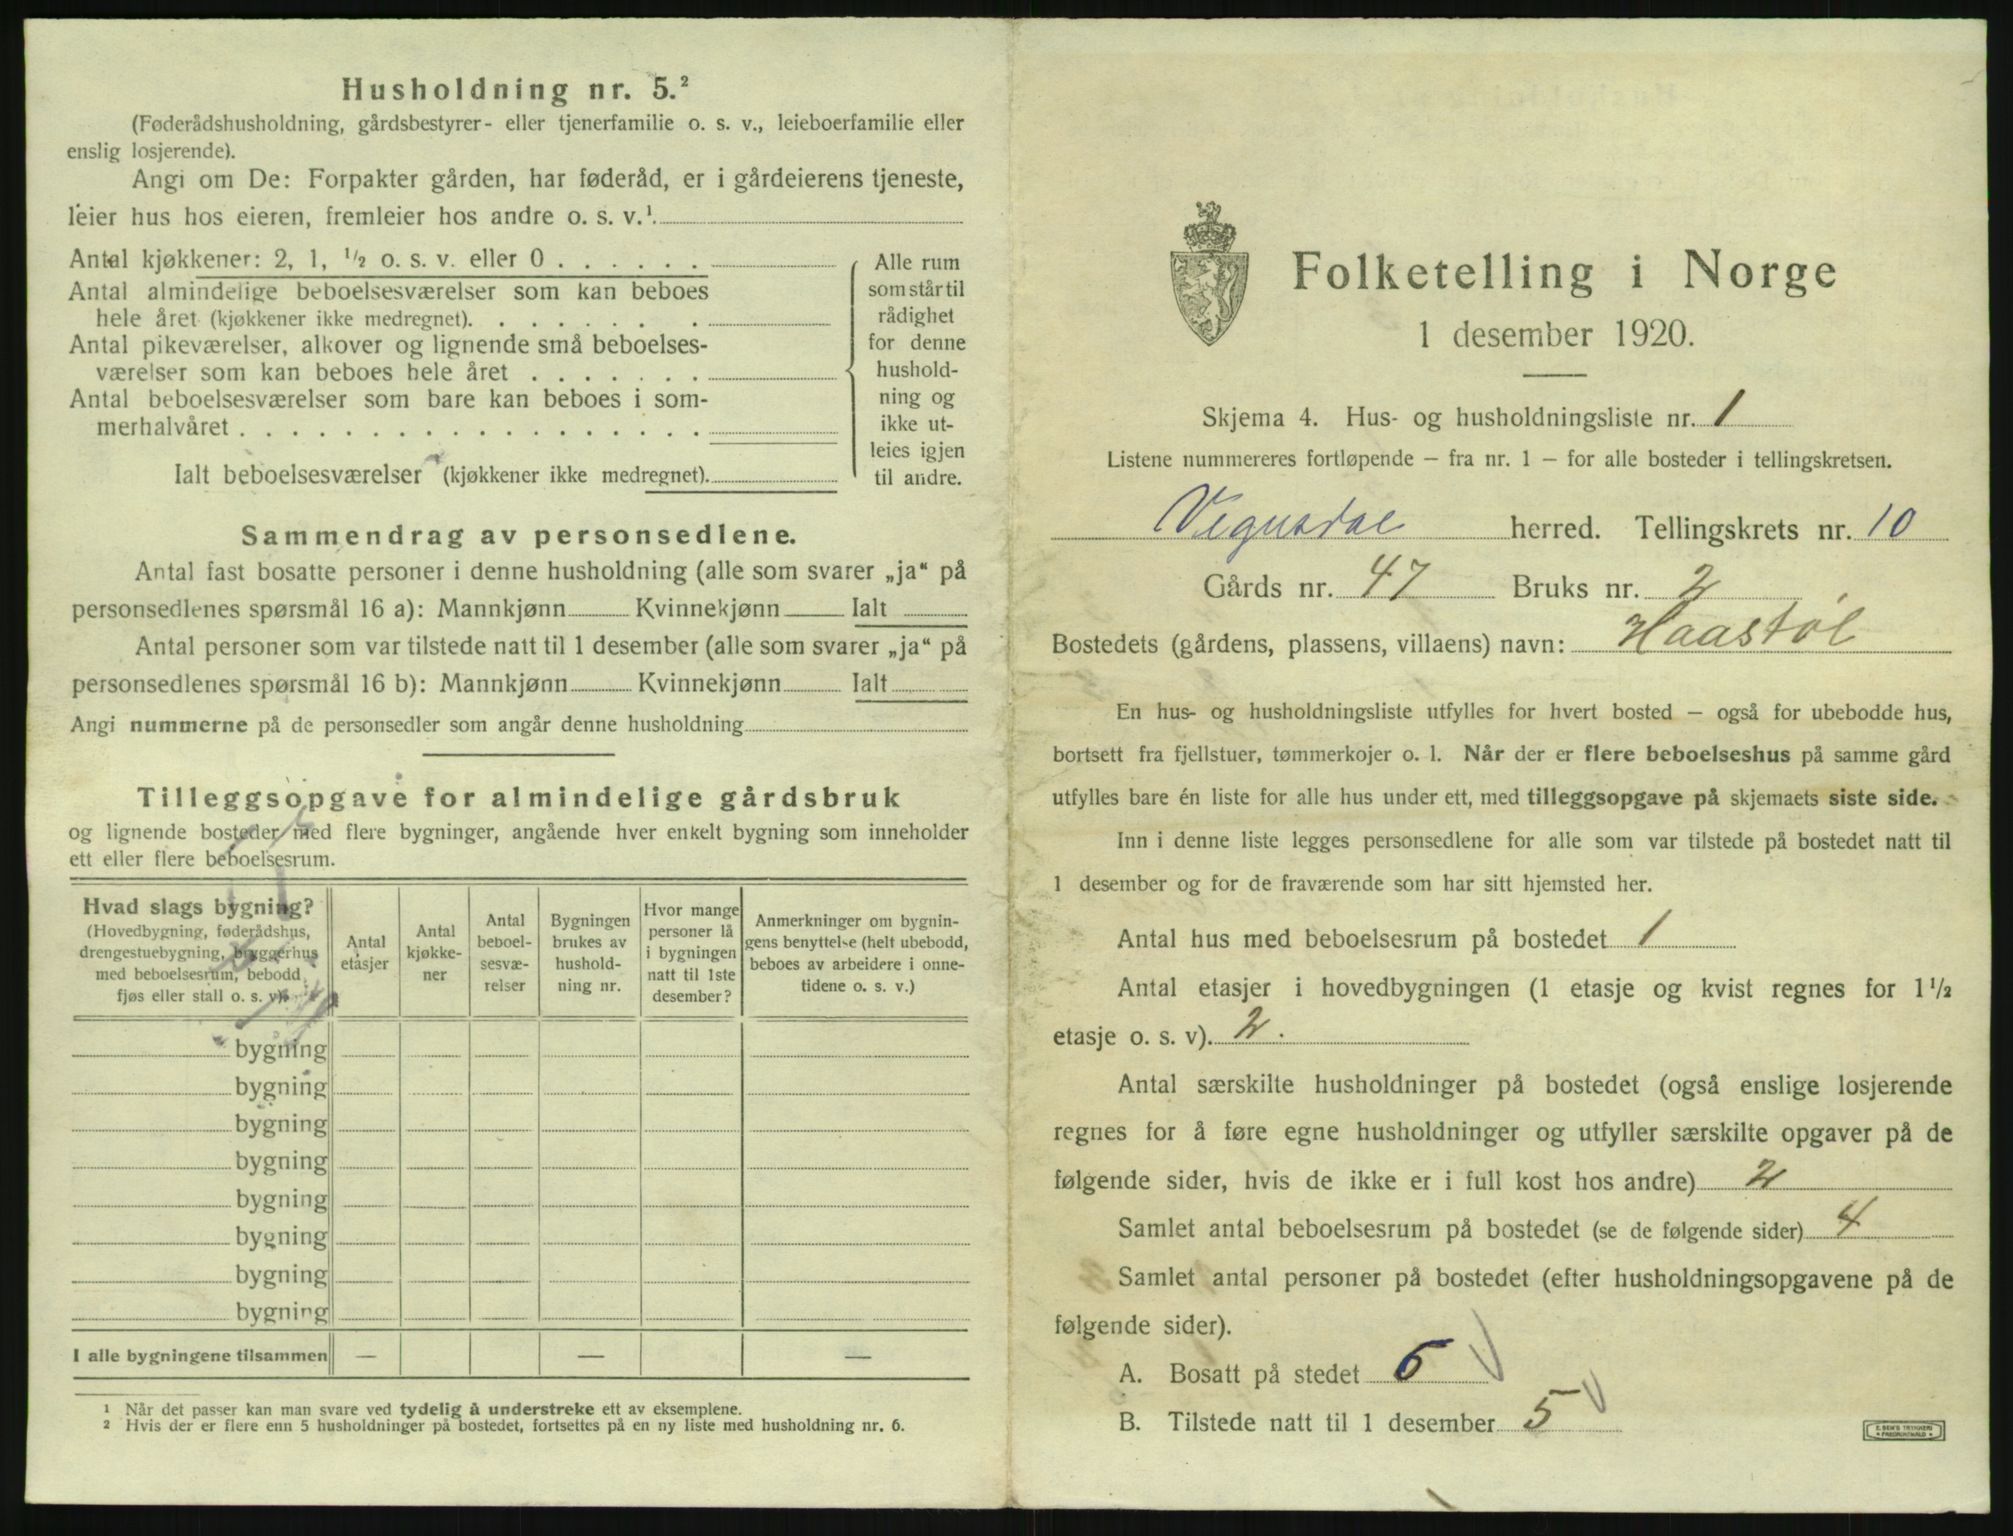 Husholdning nr. 5.²
(Føderådshusholdning, gårdsbestyrer- eller tjenerfamilie o. s. v., leieboerfamilie eller
enslig losjerende).
Angi om De: Forpakter gården, har føderåd, er i gårdeierens tjeneste,
leier hus hos eieren, fremleier hos andre o. s. v.¹.
Antal kjøkkener: 2, 1, ½ o. s. v. eller 0 . . . . . .
Antal almindelige beboelsesværelser som kan beboes
hele året (kjøkkener ikke medregnet). . . . . . . .
Antal pikeværelser, alkover og lignende små beboelses-
værelser som kan beboes hele året . . . . . . .
Antal beboelsesværelser som bare kan beboes i som-
merhalvåret . . . . . . . . . . . . . . . . . .
Ialt beboelsesværelser (kjøkkener ikke medregnet).
Alle rum
som står til
rådighet
for denne
hushold-
ning og
ikke ut-
leies igjen
til andre.
Sammendrag av personsedlene.
Antal fast bosatte personer i denne husholdning (alle som svarer „ja“ på
personsedlenes spørsmål 16 a): Mannkjønn Kvinnekjønn Ialt
Antal personer som var tilstede natt til 1 desember (alle som svarer „ja“ på
personsedlenes spørsmål 16 b): Mannkjønn Kvinnekjønn Ialt
Angi nummerne på de personsedler som angår denne husholdning
Tilleggsopgave for almindelige gårdsbruk
og lignende bosteder med flere bygninger, angående hver enkelt bygning som inneholder
ett eller flere beboelsesrum.
Hvad slags bygning?
(Hovedbygning, føderådshus,
drengestuebygning, bryggerhus
med beboelsesrum, bebodd
fjøs eller stall o. s. v).
Antal
etasjer
Antal
kjøkke-
ner
Antal
beboel-
sesvæ-
relser
Bygningen
brukes av
hushold-
ning nr.
Hvor mange
personer lå
i bygningen
natt til 1ste
desember?
Anmerkninger om bygnin-
gens benyttelse (helt ubebodd,
beboes av arbeidere i onne-
tidene o. s. v.)
bygning
bygning
bygning
bygning
bygning
bygning
bygning
bygning
I alle bygningene tilsammen — — —
1 Når det passer kan man svare ved tydelig å understreke ett av eksemplene.
2 Hvis der er flere enn 5 husholdninger på bostedet, fortsettes på en ny liste med husholdning nr. 6.
Folketelling i Norge
1 desember 1920.
Skjema 4. Hus- og husholdningsliste nr. 1
Listene nummereres fortløpende — fra nr. 1 — for alle bosteder i tellingskretsen.
Vegusdal herred. Tellingskrets nr. 10
Gårds nr. 47 Bruks nr. 2
Bostedets (gårdens, plassens, villaens) navn: Haastøl
En hus- og husholdningsliste utfylles for hvert bosted — også for ubebodde hus,
bortsett fra fjellstuer, tømmerkojer o. l. Når der er flere beboelseshus på samme gård
utfylles bare én liste for alle hus under ett, med tilleggsopgave på skjemaets siste side.
Inn i denne liste legges personsedlene for alle som var tilstede på bostedet natt til
1 desember og for de fraværende som har sitt hjemsted her.
Antal hus med beboelsesrum på bostedet 1
Antal etasjer i hovedbygningen (1 etasje og kvist regnes for 1½
etasje o. s. v). 2.
Antal særskilte husholdninger på bostedet (også enslige losjerende
regnes for å føre egne husholdninger og utfyller særskilte opgaver på de
følgende sider, hvis de ikke er i full kost hos andre) 2
Samlet antal beboelsesrum på bostedet (se de følgende sider) 4
Samlet antal personer på bostedet (efter husholdningsopgavene på de
følgende sider).
A. Bosatt på stedet 6
B. Tilstede natt til 1 desember 5